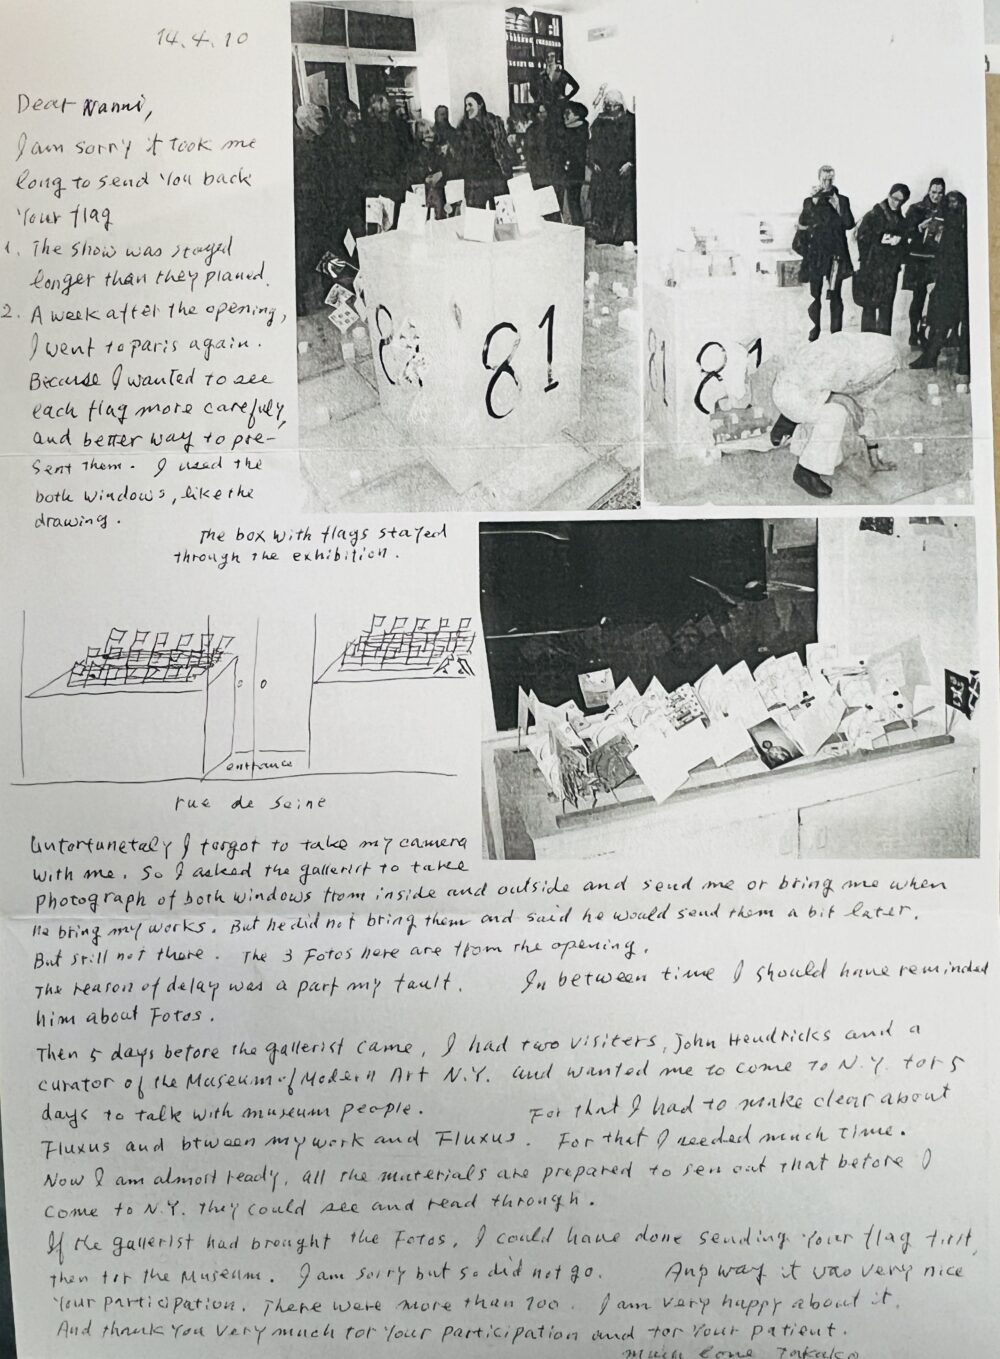 14.4.10
Dear Nanni,
I am sorry it took me
long to send you back
your flag
1. The show was stayed
longer than they planed.
2. A week after the opening,
I went to paris again.
Because I wanted to see
each flag more carefuly,
and better way to pre-
sent them. I used the
both windows, like the
drawing.
The box with flags stayed
through the exhibition.
81
81
81
entrance
rue de Seine
Unfortunetaly I forgot to take my camera
with me. So I asked the gallerist to take
photograph of both windows from inside and outside and send me or bring me when
he bring my works. But he did not bring them and said he would send them a bit later.
But still not there. The 3 Fotos here are from the opening.
The reason of delay was a part my fault. In between time I should have reminded
him about Fotos.
Then 5 days before the gallerist came, I had two visiters, John Hendricks and a
curator of the Museum of Modern Art N.Y. and wanted me to come to N.Y. for 5
days to talk with museum people. For that I had to make clear about
Fluxus and btween my work and Fluxus. For that I needed much time.
Now I am almost ready, all the materials are prepared to sen out that before I
come to N.Y. they could see and read through.
If the gallerist had brought the Fotos, I could have done sending your flag first,
then for the Museum. I am sorry but so did not go. Any way it was very nice
your participation. There were more than 100. I am very happy about it.
And thank you very much for your participation and for your patient.
much love Takako